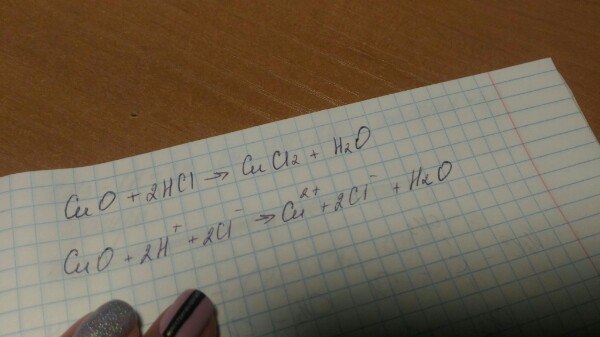 CuO + 2HCl → CuCl₂ + H₂O
CuO + 2H⁺ + 2Cl⁻ → Cu²⁺ + 2Cl⁻ + H₂O